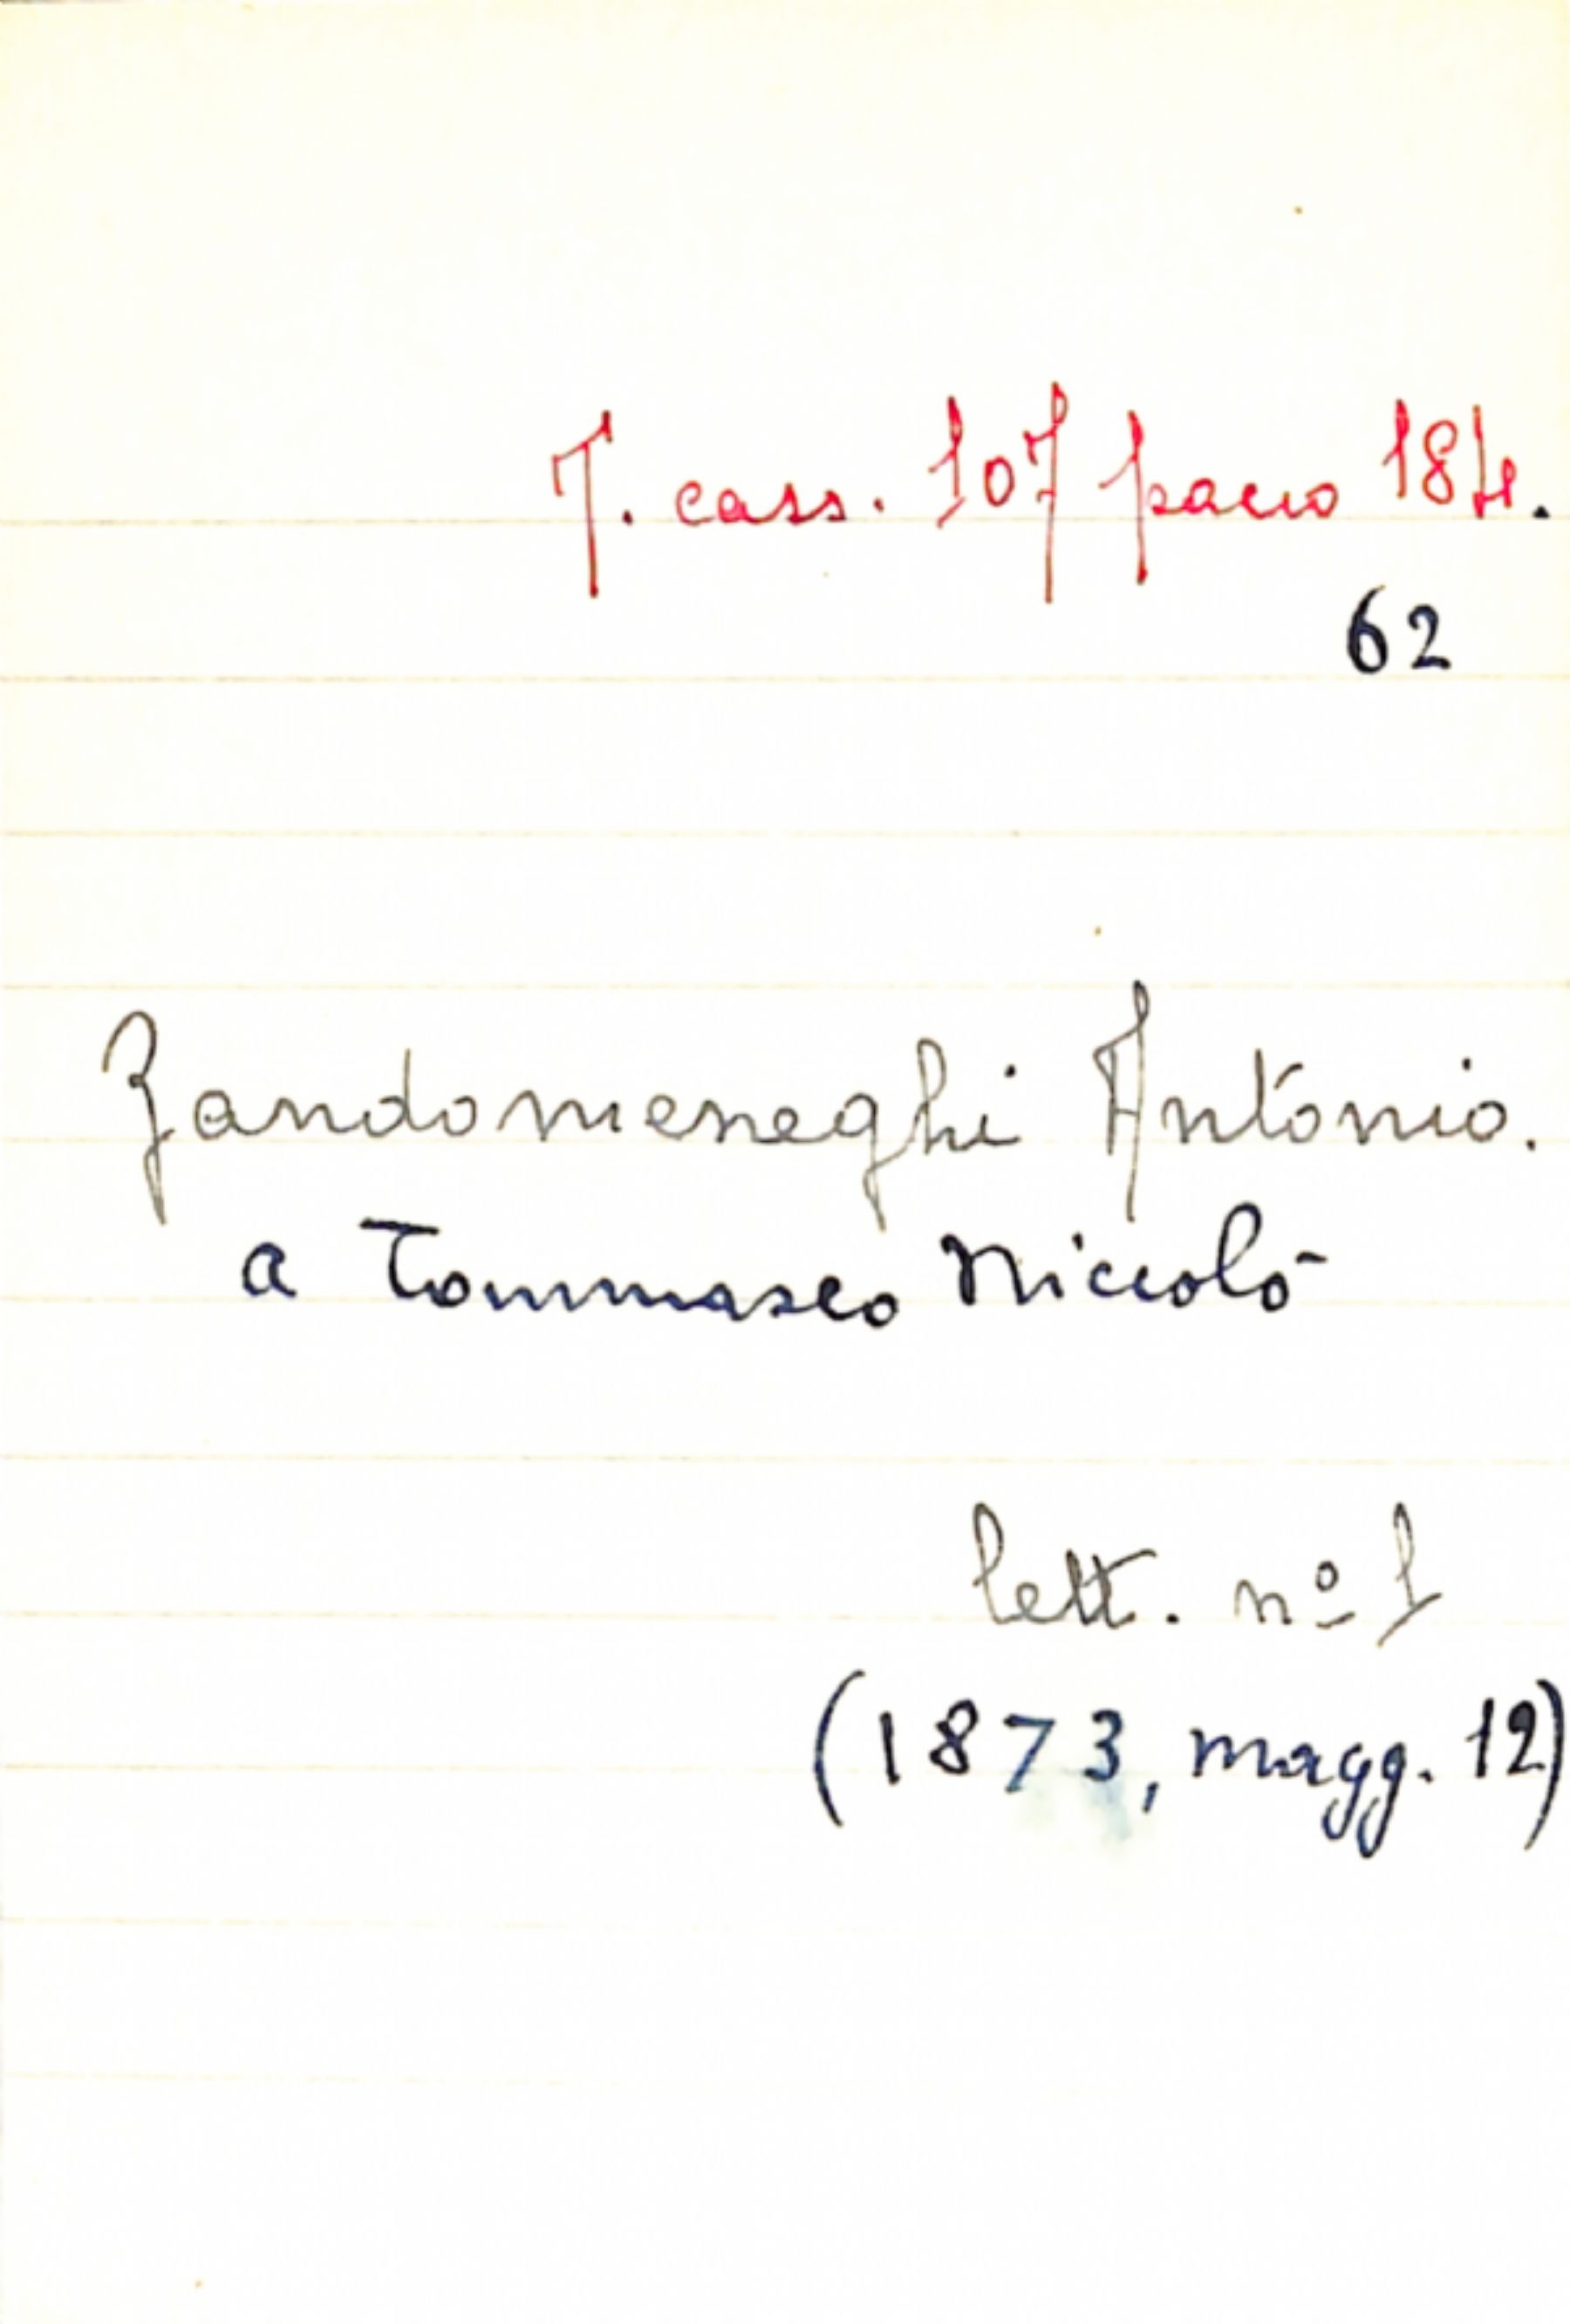 T. cass. 107 pacco 184.
62
Zandomeneghi Antonio.
a Tommaseo Niccolò
lett. nº 1
(1873, magg. 12)